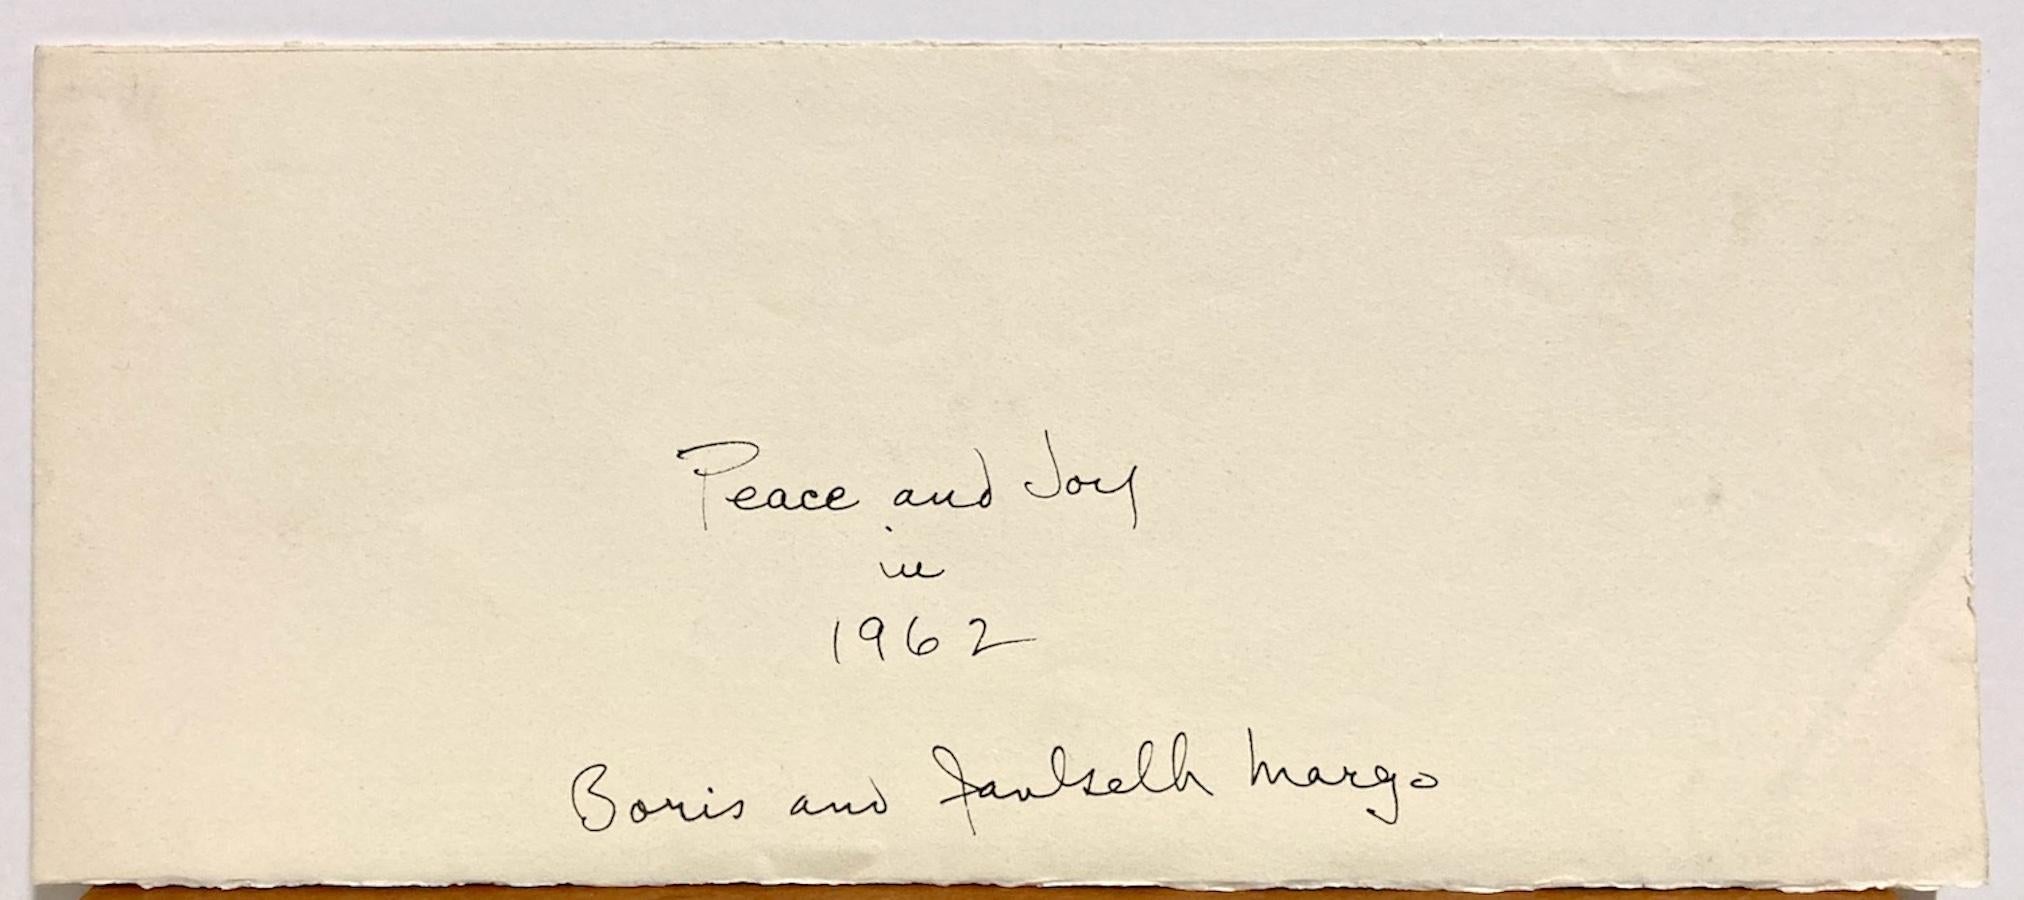 Peace and Joy
in
1962
Boris and Margo